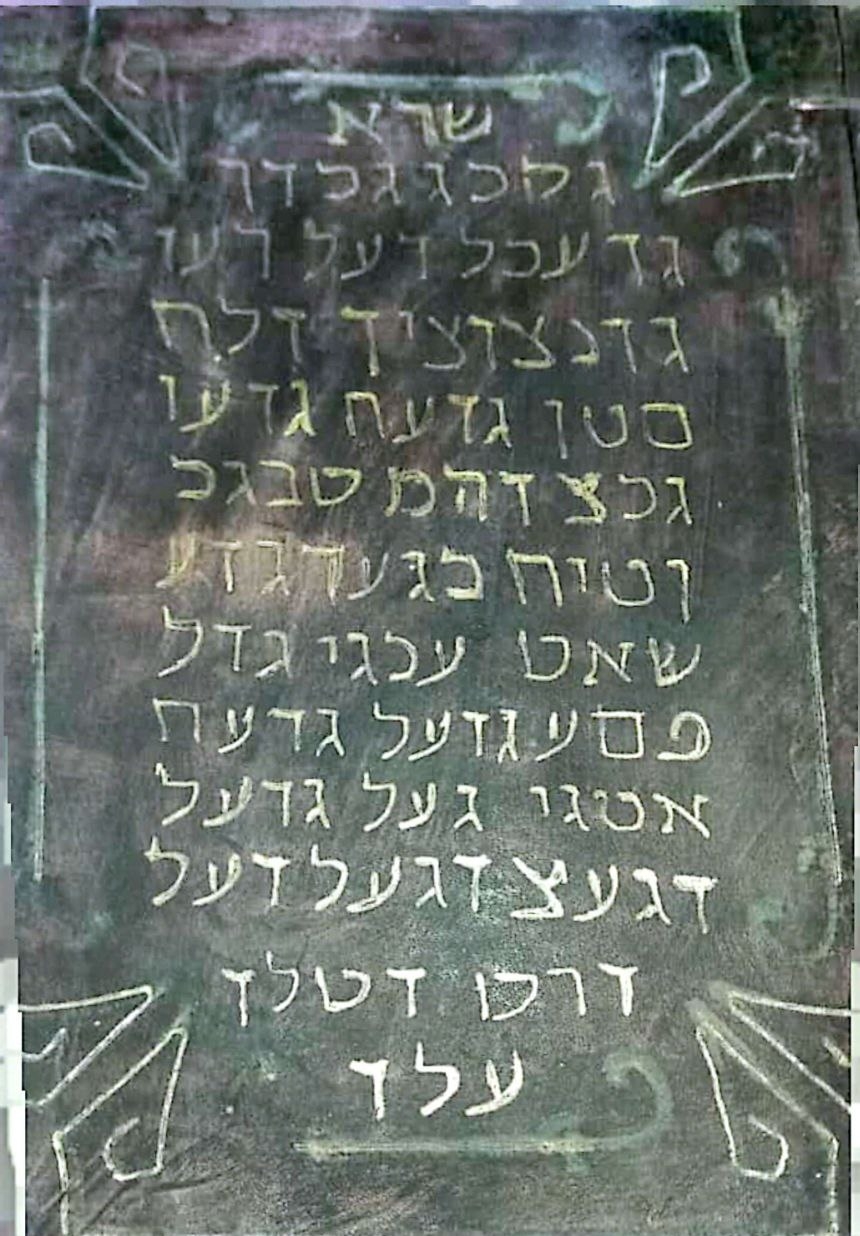 שרא
גסכגגכדך
גד עכל דעל רעו
גדנצוציד דלח
סטן גדעח גדעו
גכצ דהמ טבגכ
וטיח כגעדגדע
שאט עכגי גדל
פסעגדעל גדעח
אטגי געל גדעל
דגעצ דגעל דעל
דרכו דטלך
עלד